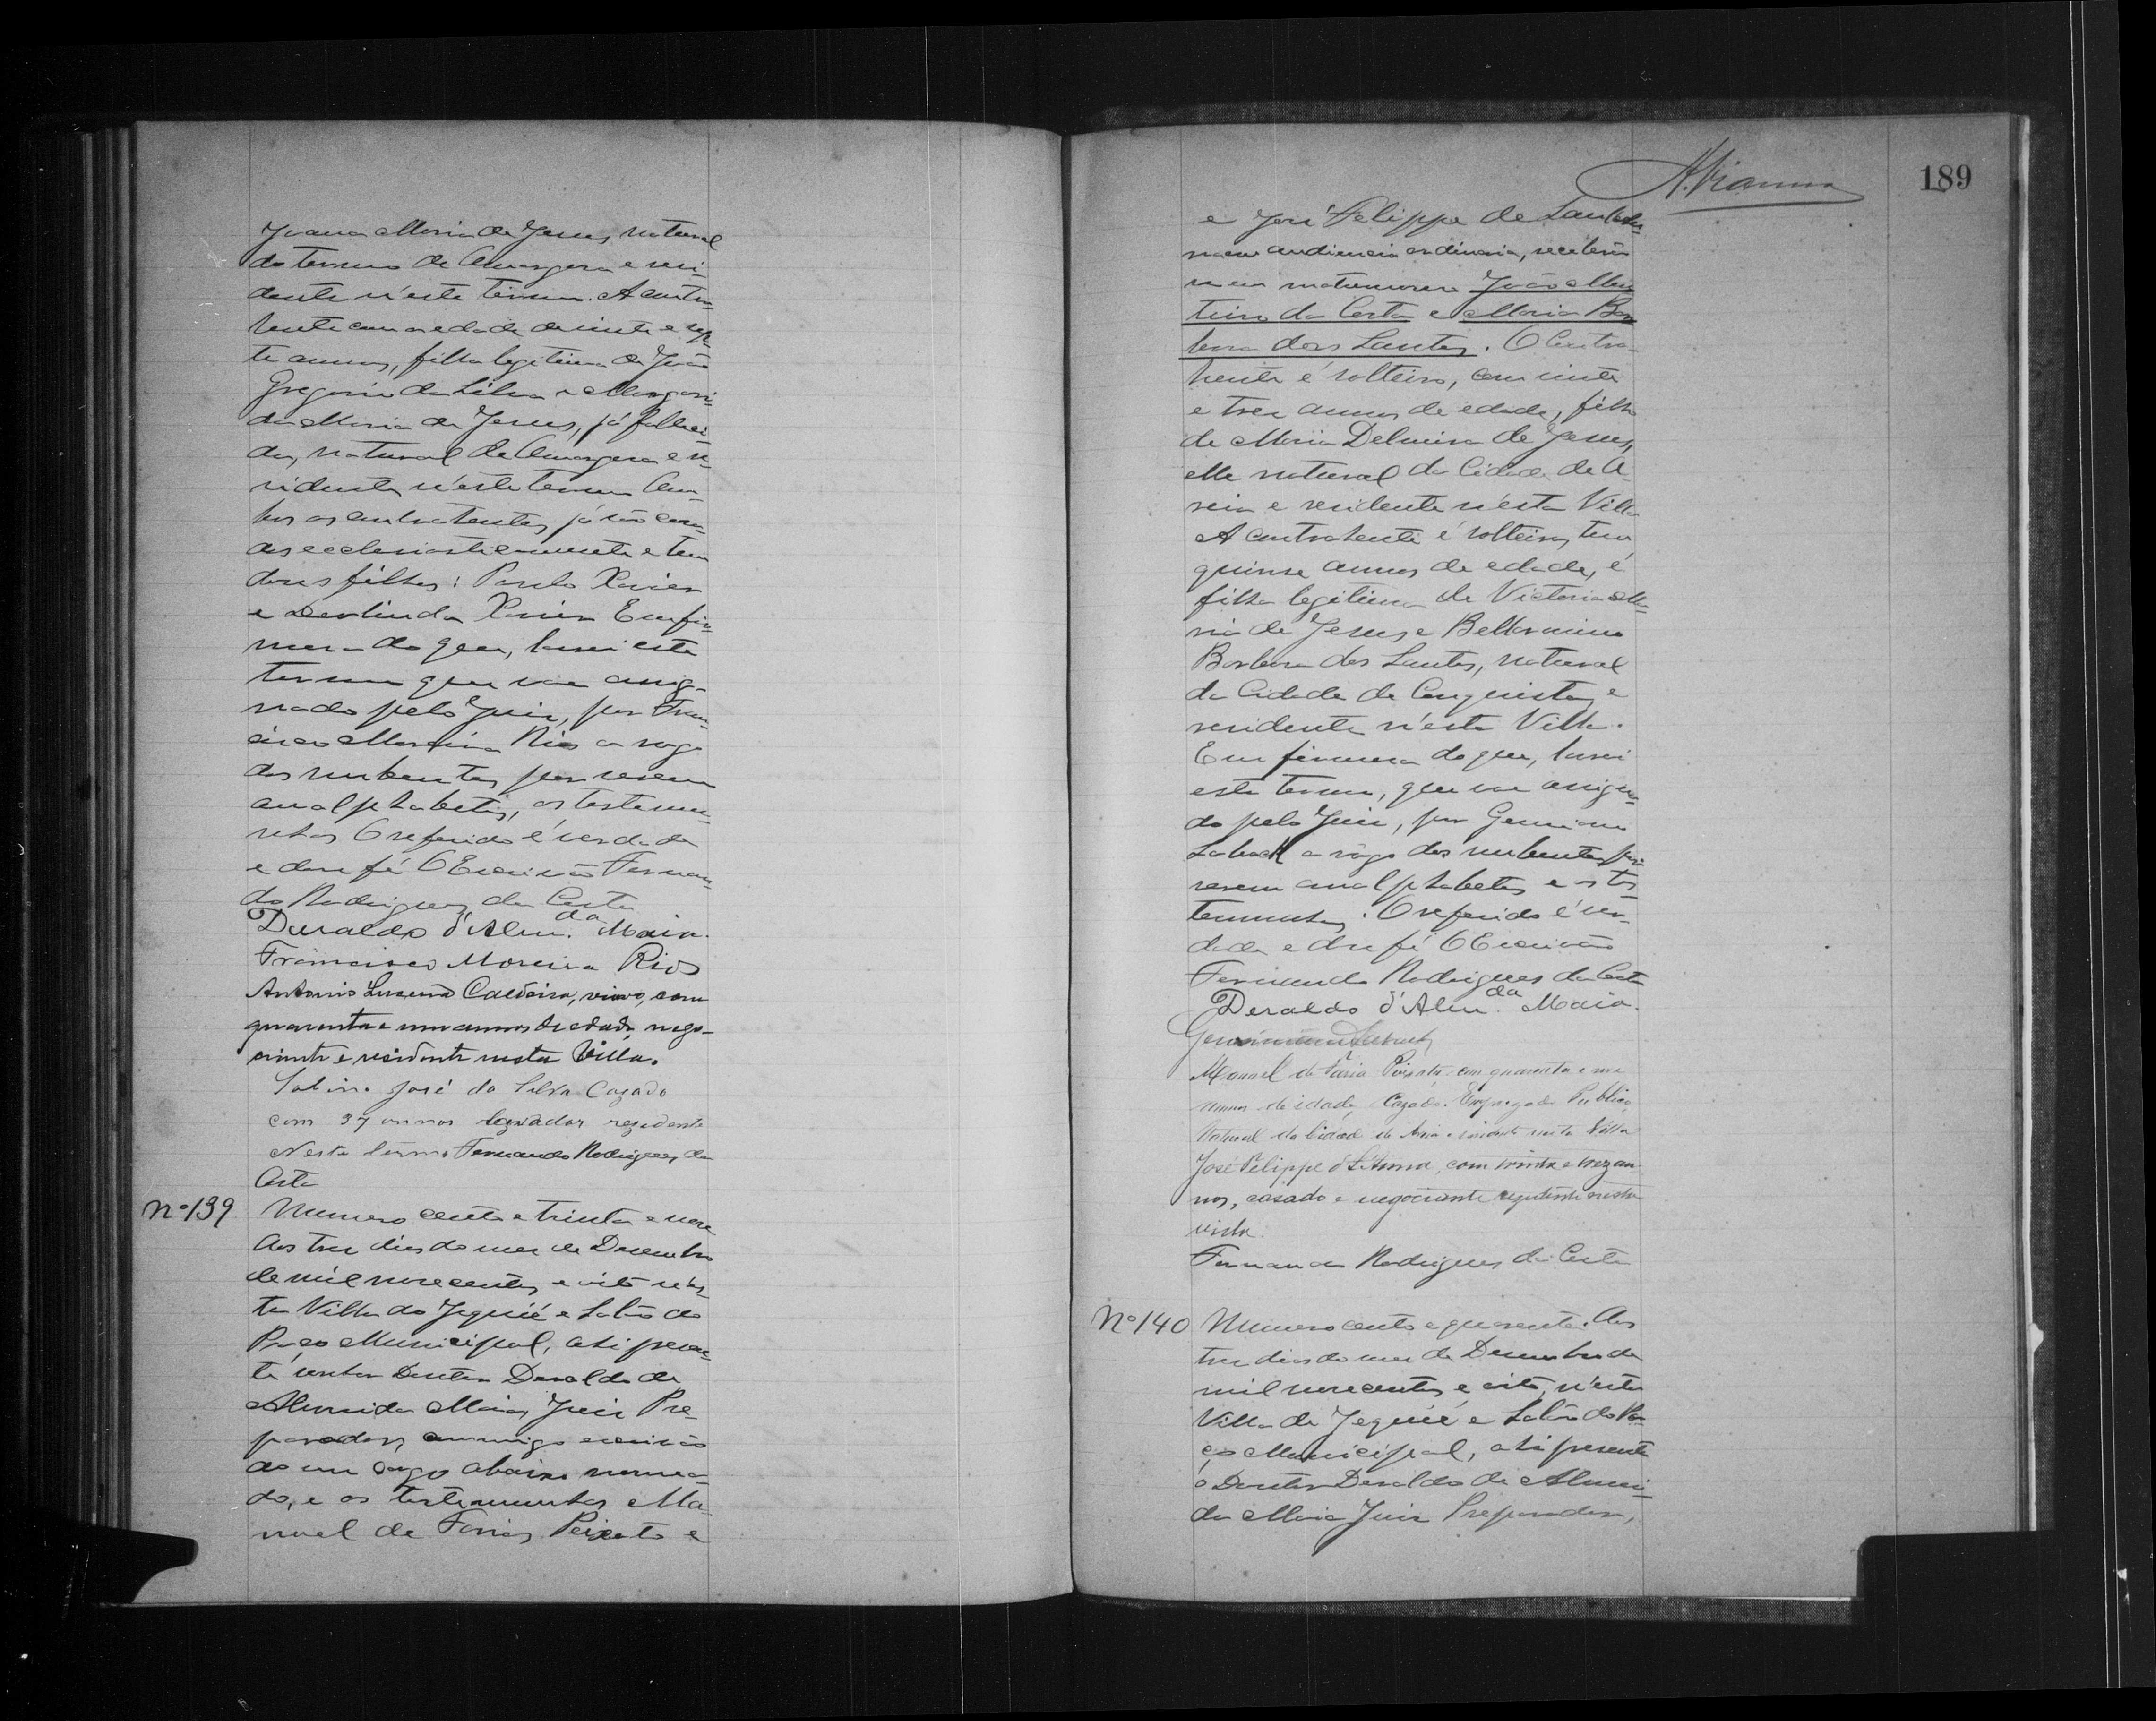 Joana Maria de Jesus, natural
do termo de Amargosa e resi-
dente n'este termo. A contra-
hente com a edade de vinte e sep-
te annos, filha legitima de João
Gregorio da Silva e Margari-
da Maria de Jesus, já falleci-
da, natural de Amargosa e re-
sidente n'este termo Am-
bos os contrahentes já são casa-
dos ecclesiasticamente e tem
dous filhos: Paulo Xavier
e Deolinda Xavier Em fir-
mesa do que, lavrei este
termo que vae assig-
nado pelo Juiz, por Fran-
cisco Moreira Rios a rogo
dos nubentes por serem
analphabetos, as testemu-
nhas O referido é verdade
e dou fé O Escrivão Fernan-
do Rodrigues da Costa
Deraldo d'Alm.da Maia.
Francisco Moreira Rios
Antonio Lucena Caldeira, viuvo, com
quarenta e um annos de edade nego-
ciante e residente nesta Villa.
Sabino José da Silva Cazado
com 37 annos lavrador rezidente
Neste termo Fernando Rodrigues da
Costa
Nº 139 Numero cento e trinta e nove
Aos tres dias do mez de Dezembro
de mil novecentos e oito n'es-
ta Villa do Jequié e Salão do
Paço Municipal, ahi presen-
te senhor Doutor Deraldo de
Almeida Maia, Juiz Pre-
parador, commigo escrivão
do seu cargo abaixo nomea-
do, e as testemunhas Ma-
noel de Farias Peixoto e
A. Vianna
189
e José Felippe de Sant'Anna
em audiencia ordinaria, receberão
se em matrimonio João Mon-
teiro da Costa e Maria Bar-
bosa dos Santos. O Contra-
hente é solteiro, com vinte
e tres annos de edade, filho
de Maria Delmira de Jesus,
elle natural da Cidade de A-
reia e residente n'esta Villa
A contrahente é solteira, tem
quinse annos de edade, é
filha legitima de Victoria Ma-
ria de Jesus e Bellarmino
Barbosa dos Santos, natural
da Cidade de Conquista, e
residente n'esta Villa.
Em firmesa do que, lavrei
este termo, que vae assigna-
do pelo Juiz, por Geminiano
Saback a rogo dos nubentes por
serem analphabetos e as tes-
temunhas. O referido é ver-
dade e dou fé O Escrivão
Fernando Rodrigues da Costa
Deraldo d'Alm.da Maia.
Geminiano Saback
Manoel de Faria Peixoto, com quarenta e um
annos de idade, Cazado. Empregado Publico,
Natural da Cidade de Areia e residente nesta Villa
José Felippe d'St'Anna, com trinta e trez an-
nos, casado e negociante rezidente nesta
villa.
Fernando Rodrigues da Costa
Nº 140 Numero cento e quarenta. Aos
tres dias do mez de Dezembro de
mil novecentos e oito, n'esta
Villa de Jequié e Salão do Pa-
ço Municipal, ahi presente
o Doutor Deraldo de Almei-
da Maia Juiz Preparador,